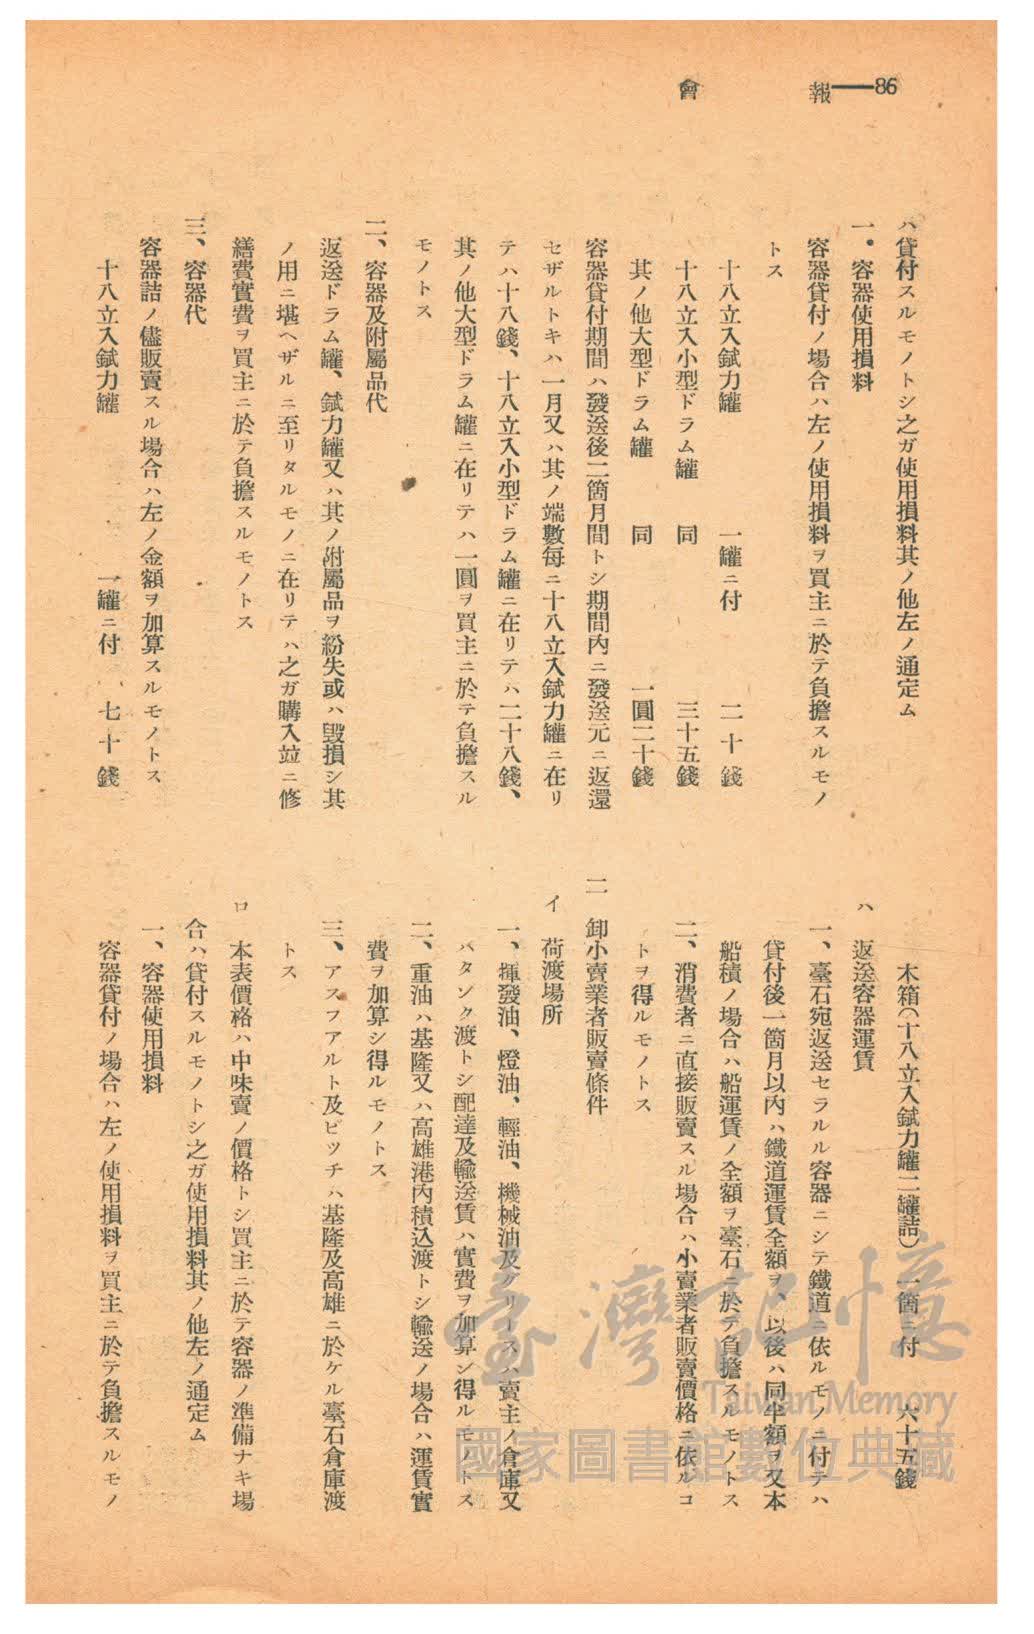 會報——86
ハ貸付スルモノトシ之ガ使用損料其ノ他左ノ通定ム
一・容器使用損料
容器貸付ノ場合ハ左ノ使用損料ヲ買主ニ於テ負擔スルモノ
トス
十八立入鉽力罐 一罐ニ付 二十錢
十八立入小型ドラム罐 同 三十五錢
其ノ他大型ドラム罐 同 一圓二十錢
容器貸付期間ハ發送後二箇月間トシ期間內ニ發送元ニ返還
セザルトキハ一月又ハ其ノ端數每ニ十八立入鉽力罐ニ在リ
テハ十八錢、十八立入小型ドラム罐ニ在リテハ二十八錢、
其ノ他大型ドラム罐ニ在リテハ一圓ヲ買主ニ於テ負擔スル
モノトス
二、容器及附屬品代
返送ドラム罐、鉽力罐又ハ其ノ附屬品ヲ紛失或ハ毀損シ其
ノ用ニ堪ヘザルニ至リタルモノニ在リテハ之ガ購入竝ニ修
繕費實費ヲ買主ニ於テ負擔スルモノトス
三、容器代
容器詰ノ儘販賣スル場合ハ左ノ金額ヲ加算スルモノトス
十八立入鉽力罐 一罐ニ付 七十錢
木箱(十八立入鉽力罐二罐詰) 一箇ニ付 六十五錢
ハ 返送容器運賃
一、臺石宛返送セラルル容器ニシテ鐵道ニ依ルモノニ付テハ
貸付後一箇月以內ハ鐵道運賃全額ヲ、以後ハ同半額ヲ又本
船積ノ場合ハ船運賃ノ全額ヲ臺石ニ於テ負擔スルモノトス
二、消費者ニ直接販賣スル場合ハ小賣業者販賣價格ニ依ルコ
トヲ得ルモノトス
二 卸小賣業者販賣條件
イ 荷渡場所
一、揮發油、燈油、輕油、機械油及グリースハ賣主ノ倉庫又
ハタンク渡トシ配達及輸送賃ハ實費ヲ加算シ得ルモノトス
二、重油ハ基隆又ハ高雄港內積込渡トシ輸送ノ場合ハ運賃實
費ヲ加算シ得ルモノトス
三、アスフアルト及ピッチハ基隆及高雄ニ於ケル臺石倉庫渡
トス
ロ 本表價格ハ中味賣ノ價格トシ買主ニ於テ容器ノ準備ナキ場
合ハ貸付スルモノトシ之ガ使用損料其ノ他左ノ通定ム
一、容器使用損料
容器貸付ノ場合ハ左ノ使用損料ヲ買主ニ於テ負擔スルモノ
臺灣記憶
Taiwan Memory
國家圖書館數位典藏